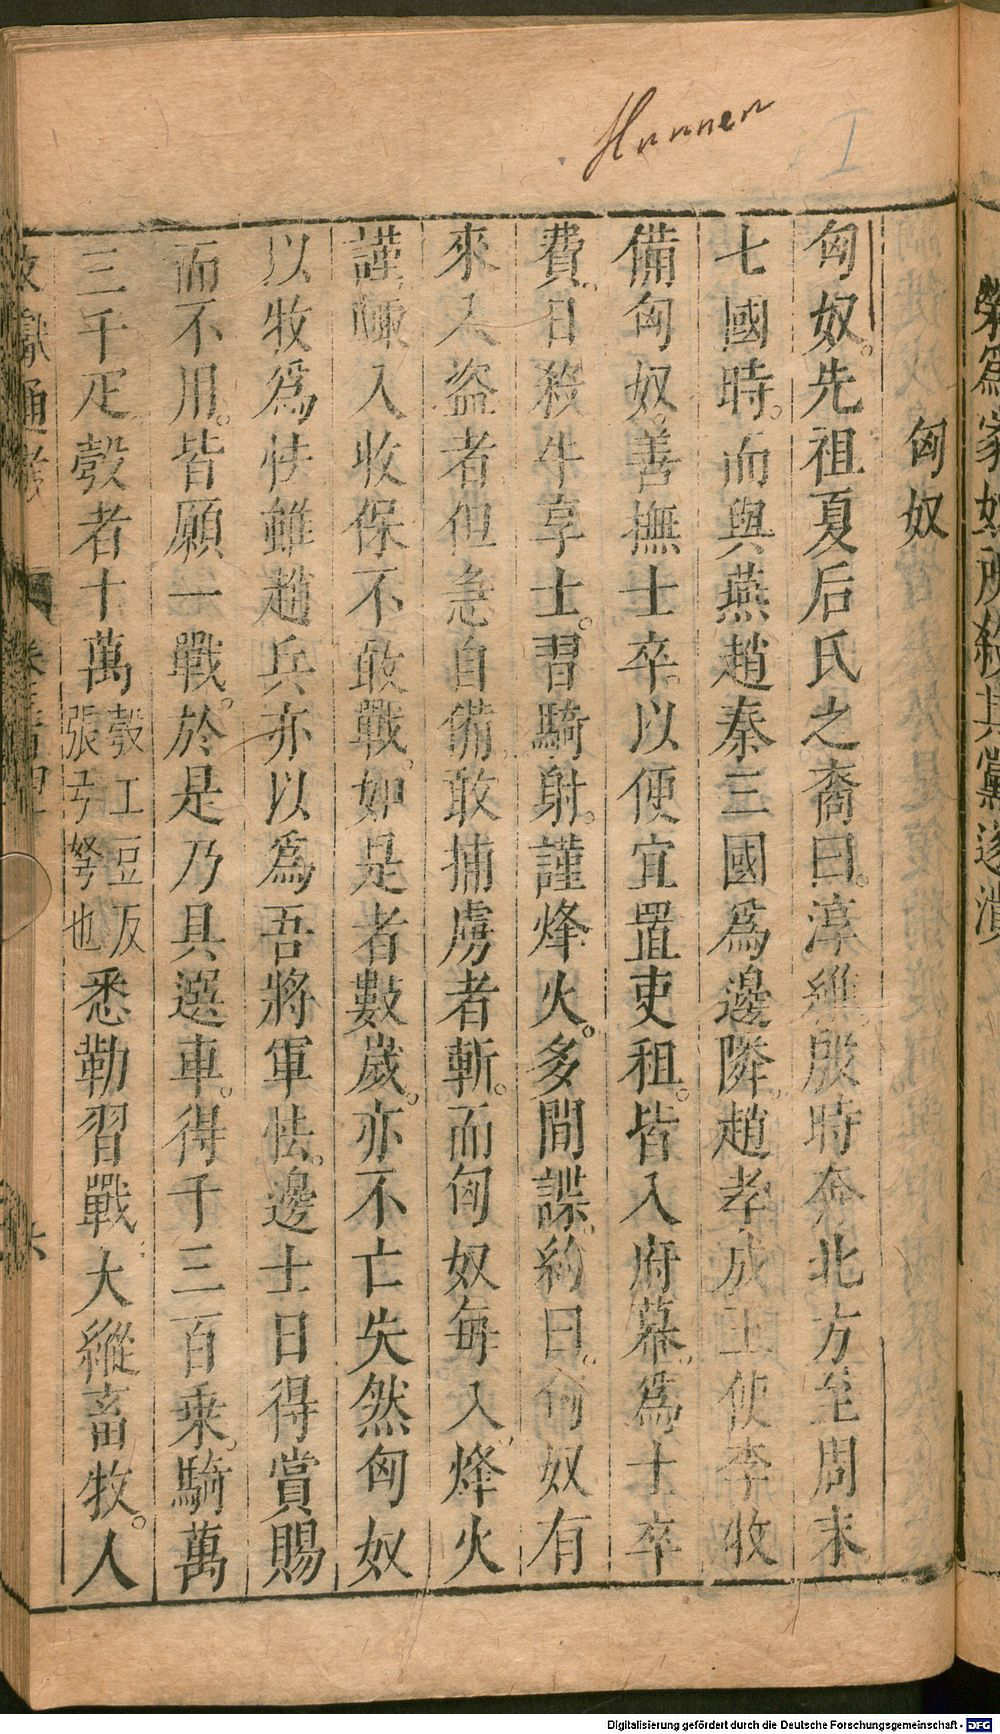 Hunnen
I
匈奴
匈奴。先祖夏后氏之裔曰。淳維。殷時奔北方至周末
七國時。而與燕趙秦三國爲邊隣。趙孝成王使李牧
備匈奴。善撫士卒。以便宜置吏租。皆入府幕。爲士卒
費。日殺牛享士。習騎射。謹烽火。多間諜。約曰。匈奴有
來入盗者但急自備敢捕虜者斬。而匈奴每入烽火
謹輒入收保不敢戰。如是者數歲。亦不亡失然匈奴
以牧爲怯雖趙兵亦以爲吾將軍怯。邊士日得賞賜
而不用。皆願一戰。於是乃具選車。得千三百乘。騎萬
三千疋彀者十萬 彀工豆反 張弓弩也 悉勒習戰大縱畜牧。人
文獻通考
榮爲家奴所殺其黨遂潰
Digitalisierung gefördert durch die Deutsche Forschungsgemeinschaft - DFG